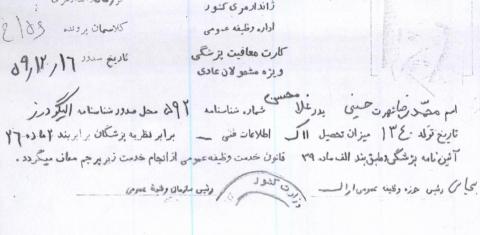 ژاندارمری کشور
اداره وظیفه عمومی
کلاسمان پرونده
کارت معافیت پزشکی
تاریخ صدور ۵۹/۱۲/۱۶
ویژه مشمولان عادی
اسم محمدرضا شهرت حسینی پدر غلامحسین شماره شناسنامه ۵۹۲ محل صدور شناسنامه الیگودرز
تاریخ تولد ۱۳۴۰ میزان تحصیل اطلاعات فنی – برابر نظریه پزشکان برابر بند ماده ۲۶
آئین نامه پزشکی و طبق بند الف ماده ۳۹ قانون خدمت وظیفه عمومی از انجام خدمت زیر پرچم معاف میگردد.
رئیس حوزه وظیفه عمومی اراک رئیس سازمان وظیفه عمومی
وزارت کشور